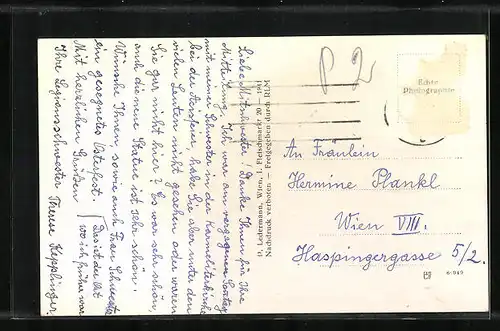 Liebe Mitschwester! Danke Ihnen für Ihre
Mitteilung. Ich war am vergangenen Sonntag
mit meiner Schwester in der Karmelitenkirche
bei der Aussfeier, habe Sie aber unter den
vielen Leuten nicht gesehen oder waren
Sie gar nicht hier? Es war sehr schön,
auch die neue Statue ist sehr schön.
Wünsche Ihnen, sowie auch Frau Schwester
ein gesegnetes Osterfest.
Mit herzlichen Grüßen
Ihre Legionsschwester Therese Kepplinger
Das ist der Ort
wo ich früher war
O. Ledermann, Wien, I. Fleischmarkt 20 — Tel.
Nachdruck verboten — Freigegeben durch RLM
P 2
Echte
Photographie
An Fräulein
Hermine Plankl
Wien VIII.
Haspingergasse 5/2.
6/049